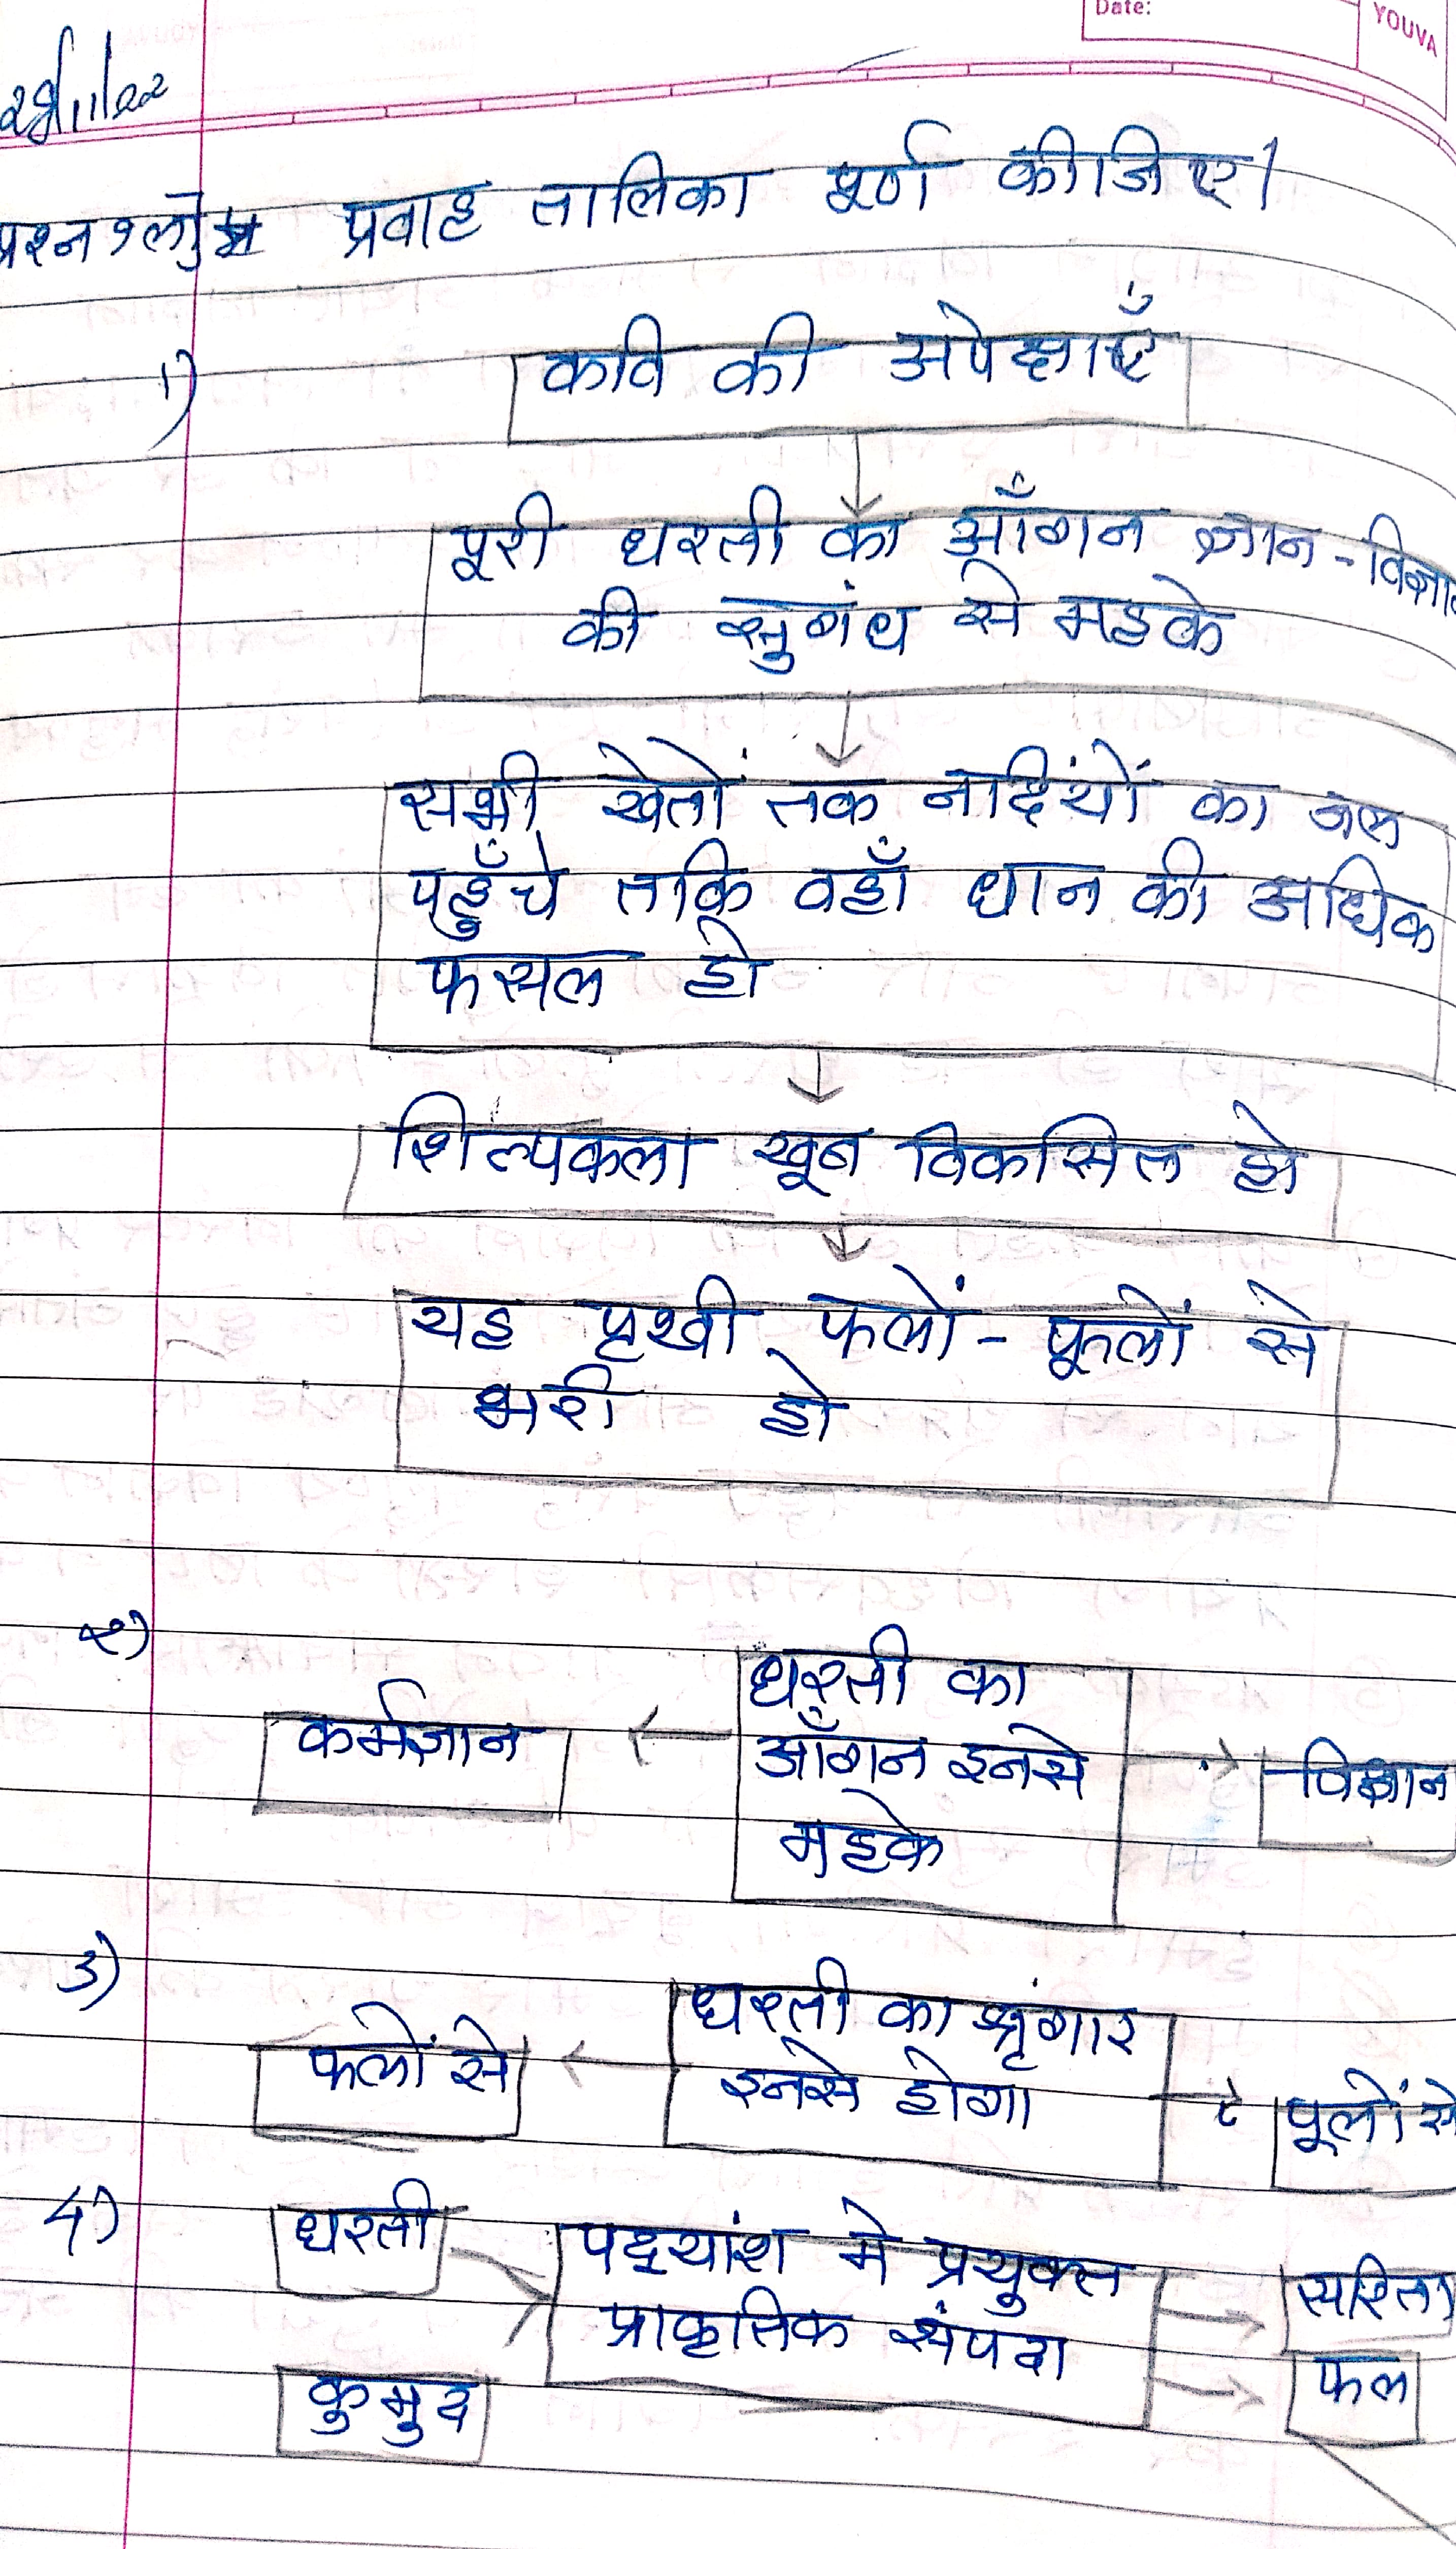 Date:
YOUVA
28/11/22
प्रश्न १ला प्रवाह तालिका पूर्ण कीजिए।
1)
कवि की अपेक्षाएँ
पूरी धरती का आँगन ज्ञान-विज्ञा
की सुगंध से महके
सभी खेतों तक नदियों का जल
पहुँचे ताकि वहाँ धान की अधिक
फसल हो
शिल्पकला खूब विकसित हो
यह पृथ्वी फलों - फूलों से
भरी हो
२)
धरती का
कर्मज्ञान आँगन इनसे विज्ञान
महके
3)
धरती का श्रृंगार
फलों से इनसे होगा फूलों से
4)
धरती पद्यांश मे प्रयुक्त सरिता
प्राकृतिक संपदा फल
कुमुद